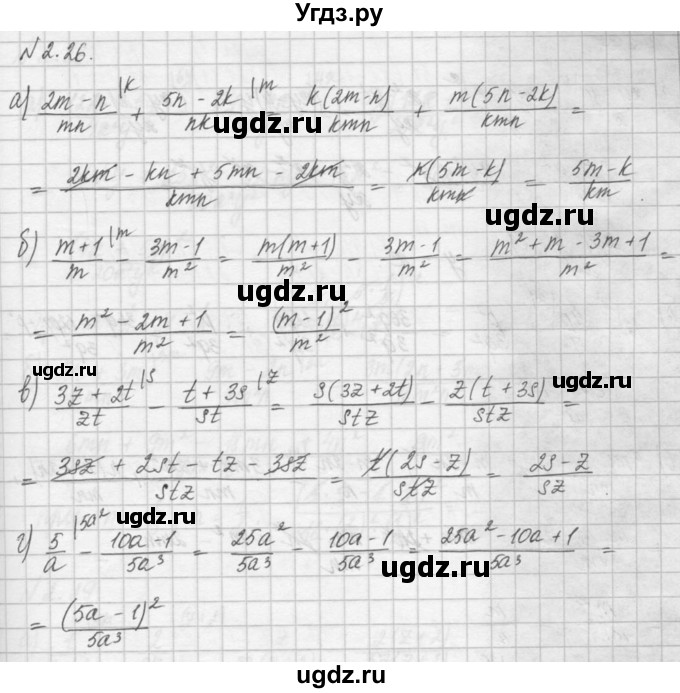 Угдз.ру
№ 2.26.
а) (2m - n)/mn |k + (5n - 2k)/nk |m = k(2m-n)/kmn + m(5n-2k)/kmn =
ugdz.ru ugdz.ru
= (2km - kn + 5mn - 2km)/kmn = n(5m-k)/kmn = (5m-k)/km
ugdz.ru
б) (m+1)/m |m - (3m-1)/m² = m(m+1)/m² - (3m-1)/m² = (m² + m - 3m + 1)/m² =
ugdz.ru
= (m² - 2m + 1)/m² = (m-1)²/m²
ugdz.ru ugdz.ru
в) (3z + 2t)/zt |s - (t + 3s)/st |z = s(3z+2t)/stz - z(t + 3s)/stz =
ugdz.ru
= (3sz + 2st - tz - 3sz)/stz = t(2s - z)/stz = (2s - z)/sz
ugdz.ru
г) 5/a |5a² - (10a - 1)/5a³ = 25a²/5a³ - (10a - 1)/5a³ = (25a² - 10a + 1)/5a³ =
ugdz.ru
= (5a - 1)²/5a³
ugdz.ru ugdz.ru